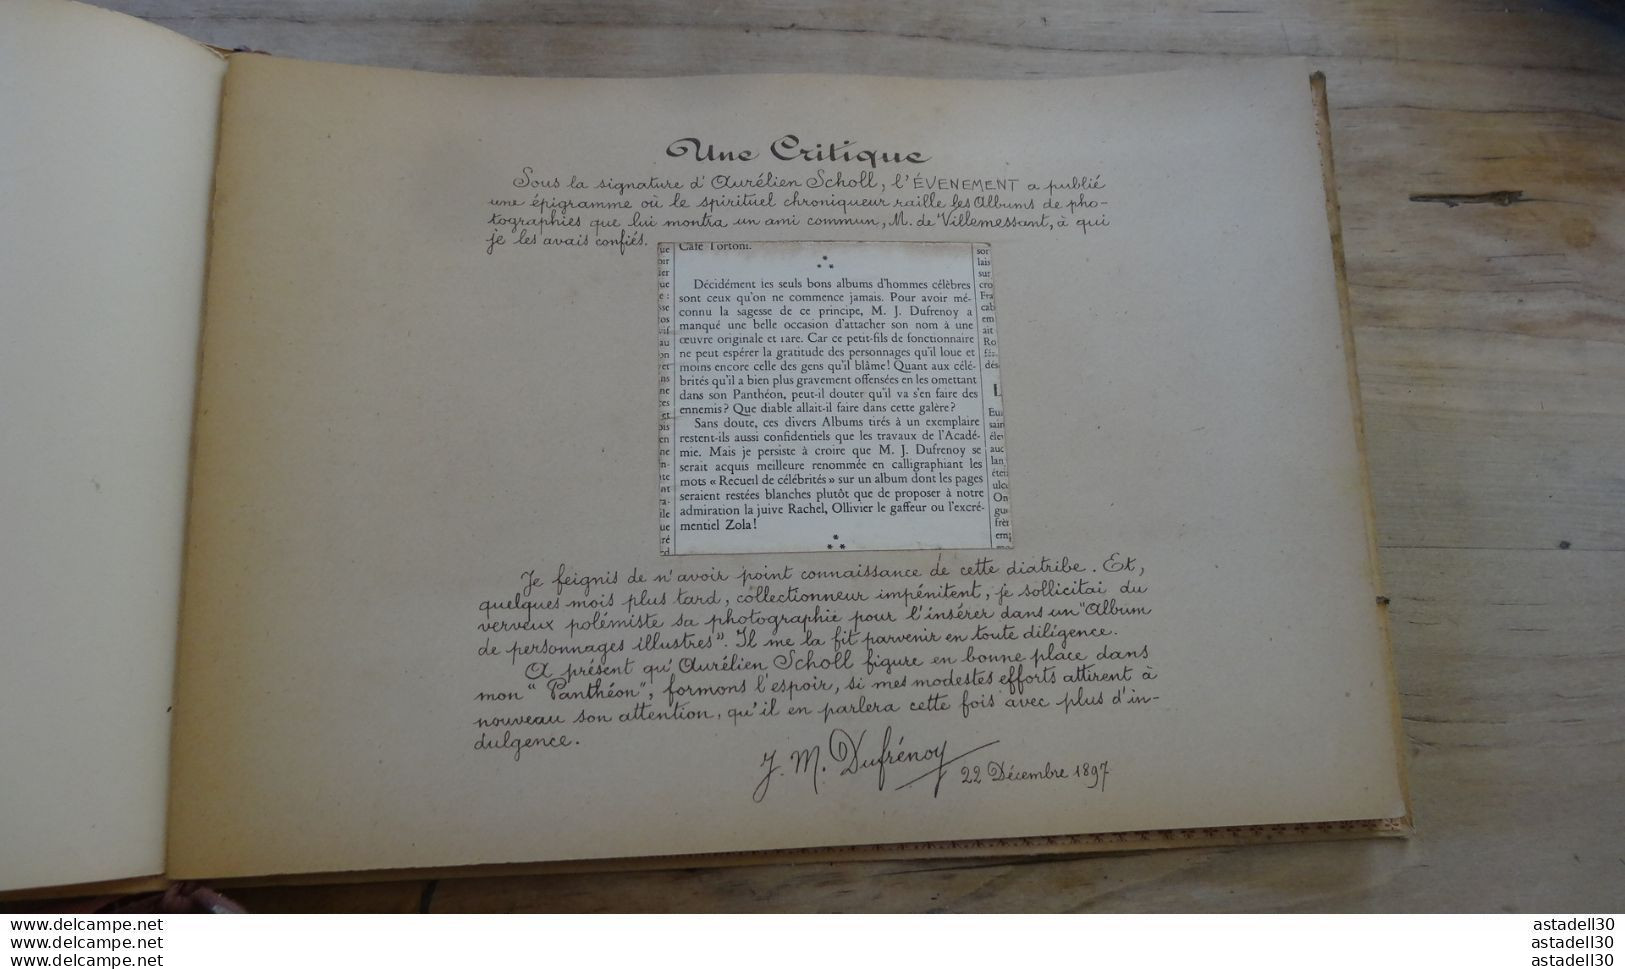 Une Critique
Sous la signature d'Aurélien Scholl, l'ÉVENEMENT a publié
une épigramme où le spirituel chroniqueur raille les Albums de pho-
tographies que lui montra un ami commun, M. de Villemessant, à qui
je les avais confiés.
Café Tortoni.
Décidément les seuls bons albums d'hommes célèbres
sont ceux qu'on ne commence jamais. Pour avoir mé-
connu la sagesse de ce principe, M. J. Dufrenoy a
manqué une belle occasion d'attacher son nom à une
œuvre originale et rare. Car ce petit-fils de fonctionnaire
ne peut espérer la gratitude des personnages qu'il loue et
moins encore celle des gens qu'il blâme! Quant aux célé-
brités qu'il a bien plus gravement offensées en les omettant
dans son Panthéon, peut-il douter qu'il va s'en faire des
ennemis? Que diable allait-il faire dans cette galère?
Sans doute, ces divers Albums tirés à un exemplaire
restent-ils aussi confidentiels que les travaux de l'Acadé-
mie. Mais je persiste à croire que M. J. Dufrenoy se
serait acquis meilleure renommée en calligraphiant les
mots « Recueil de célébrités » sur un album dont les pages
seraient restées blanches plutôt que de proposer à notre
admiration la juive Rachel, Ollivier le gaffeur ou l'excré-
mentiel Zola!
Je feignis de n'avoir point connaissance de cette diatribe. Et,
quelques mois plus tard, collectionneur impénitent, je sollicitai du
verveux polémiste sa photographie pour l'insérer dans un "Album
de personnages illustres". Il me la fit parvenir en toute diligence.
A présent qu'Aurélien Scholl figure en bonne place dans
mon "Panthéon", formons l'espoir, si mes modestes efforts attirent à
nouveau son attention, qu'il en parlera cette fois avec plus d'in-
dulgence.
J. M. Dufrénoy
22 Décembre 1897
www.delcampe.net
www.delcampe.net
www.delcampe.net
astadell30
astadell30
astadell30